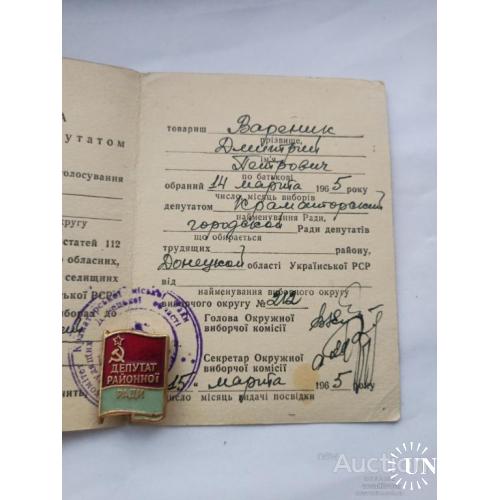 А
путатом
олосування
кругу
статей 112
обласних,
селищних
ської РСР
бораз до
товариш Вареник
прізвище,
Дмитрий
ім'я
Петрович
по батькові
обраний 14 марта 1965 року
число місяць виборів
депутатом Краматорский
найменування Ради,
городской Ради депутатів
що обирається
трудящих району,
Донецкой області Української РСР
від
найменування виборчого округу
виборчого округу № 212
Голова Окружної
виборчої комісії
Секретар Окружної
виборчої комісії
15 „ марта 1965 року
число місяць видачі посвідки
ДЕПУТАТ
РАЙОННОЇ
РАДИ
Auction
UN